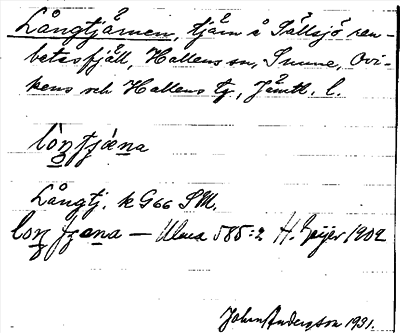 Långtjärnen, tjärn å Sällsjö ren-
betesfjäll, Hallens sn, Sunne, Ovi-
kens och Hallens tg, Jämtl. l.
lòntjæna
Långtj. k G66 SM.
lontjæna — Ulma 585:2 H. Geijer 1902
John Andersson 1931.